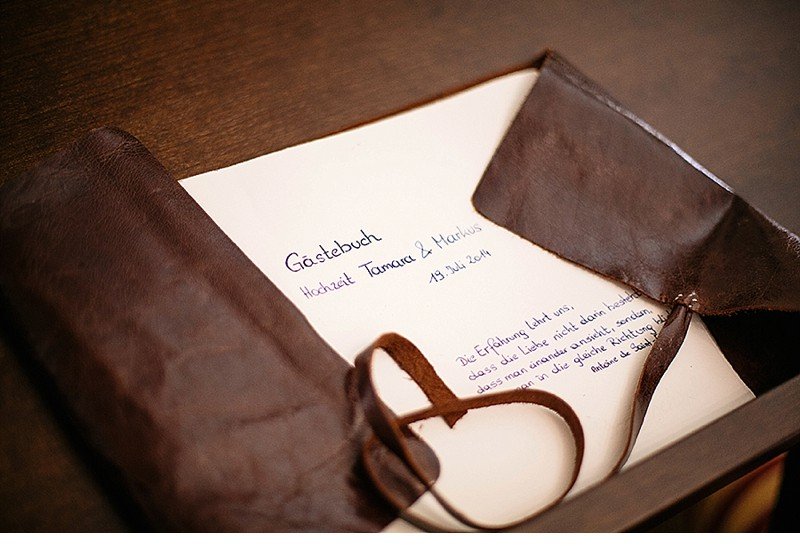 Gästebuch
Hochzeit Tamara & Markus
19. Juli 2014
Die Erfahrung lehrt uns,
dass die Liebe nicht darin besteht,
dass man einander ansieht, sondern,
man in die gleiche Richtung
Antoine de Saint